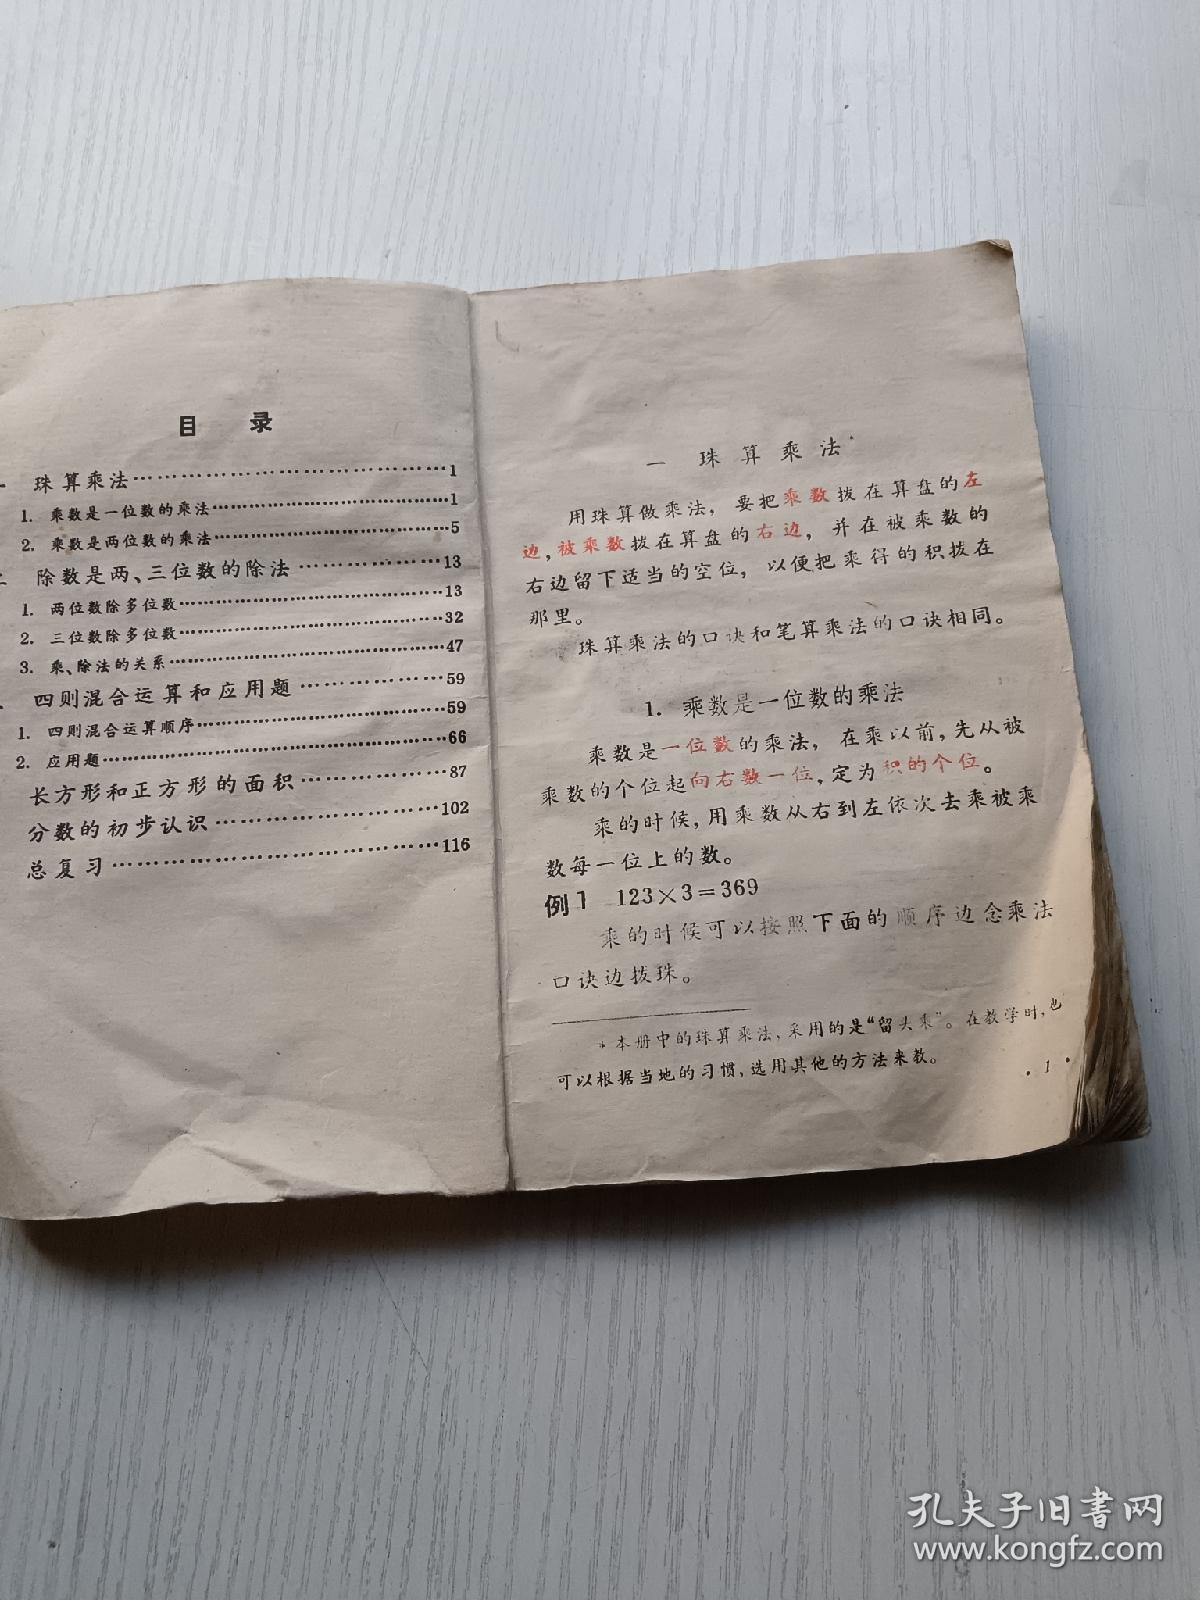 目 录
一 珠算乘法……………………………………1
1. 乘数是一位数的乘法……………………………1
2. 乘数是两位数的乘法……………………………5
除数是两、三位数的除法………………13
1. 两位数除多位数………………………………13
2. 三位数除多位数………………………………32
3. 乘、除法的关系………………………………47
四则混合运算和应用题………………59
1. 四则混合运算顺序……………………………59
2. 应用题…………………………………………66
长方形和正方形的面积………………87
分数的初步认识…………………………102
总复习……………………………………116
一 珠算乘法*
用珠算做乘法，要把乘数拨在算盘的左
边，被乘数拨在算盘的右边，并在被乘数的
右边留下适当的空位，以便把乘得的积拨在
那里。
珠算乘法的口诀和笔算乘法的口诀相同。
1. 乘数是一位数的乘法
乘数是一位数的乘法，在乘以前，先从被
乘数的个位起向右数一位，定为积的个位。
乘的时候，用乘数从右到左依次去乘被乘
数每一位上的数。
例1 123×3=369
乘的时候可以按照下面的顺序边念乘法
口诀边拨珠。
* 本册中的珠算乘法，采用的是“留头乘”。在教学时，也
可以根据当地的习惯，选用其他的方法来教。
·1·
孔夫子旧书网
www.kongfz.com